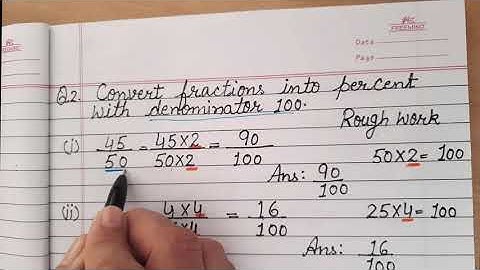 Date
Page
Q.2. Convert fractions into percent
with denominator 100.
Rough Work
(i) 45/50 = 45×2/50×2 = 90/100
50×2 = 100
Ans: 90/100
(ii) 4×4 = 16/100
25×4 = 100
Ans: 16/100